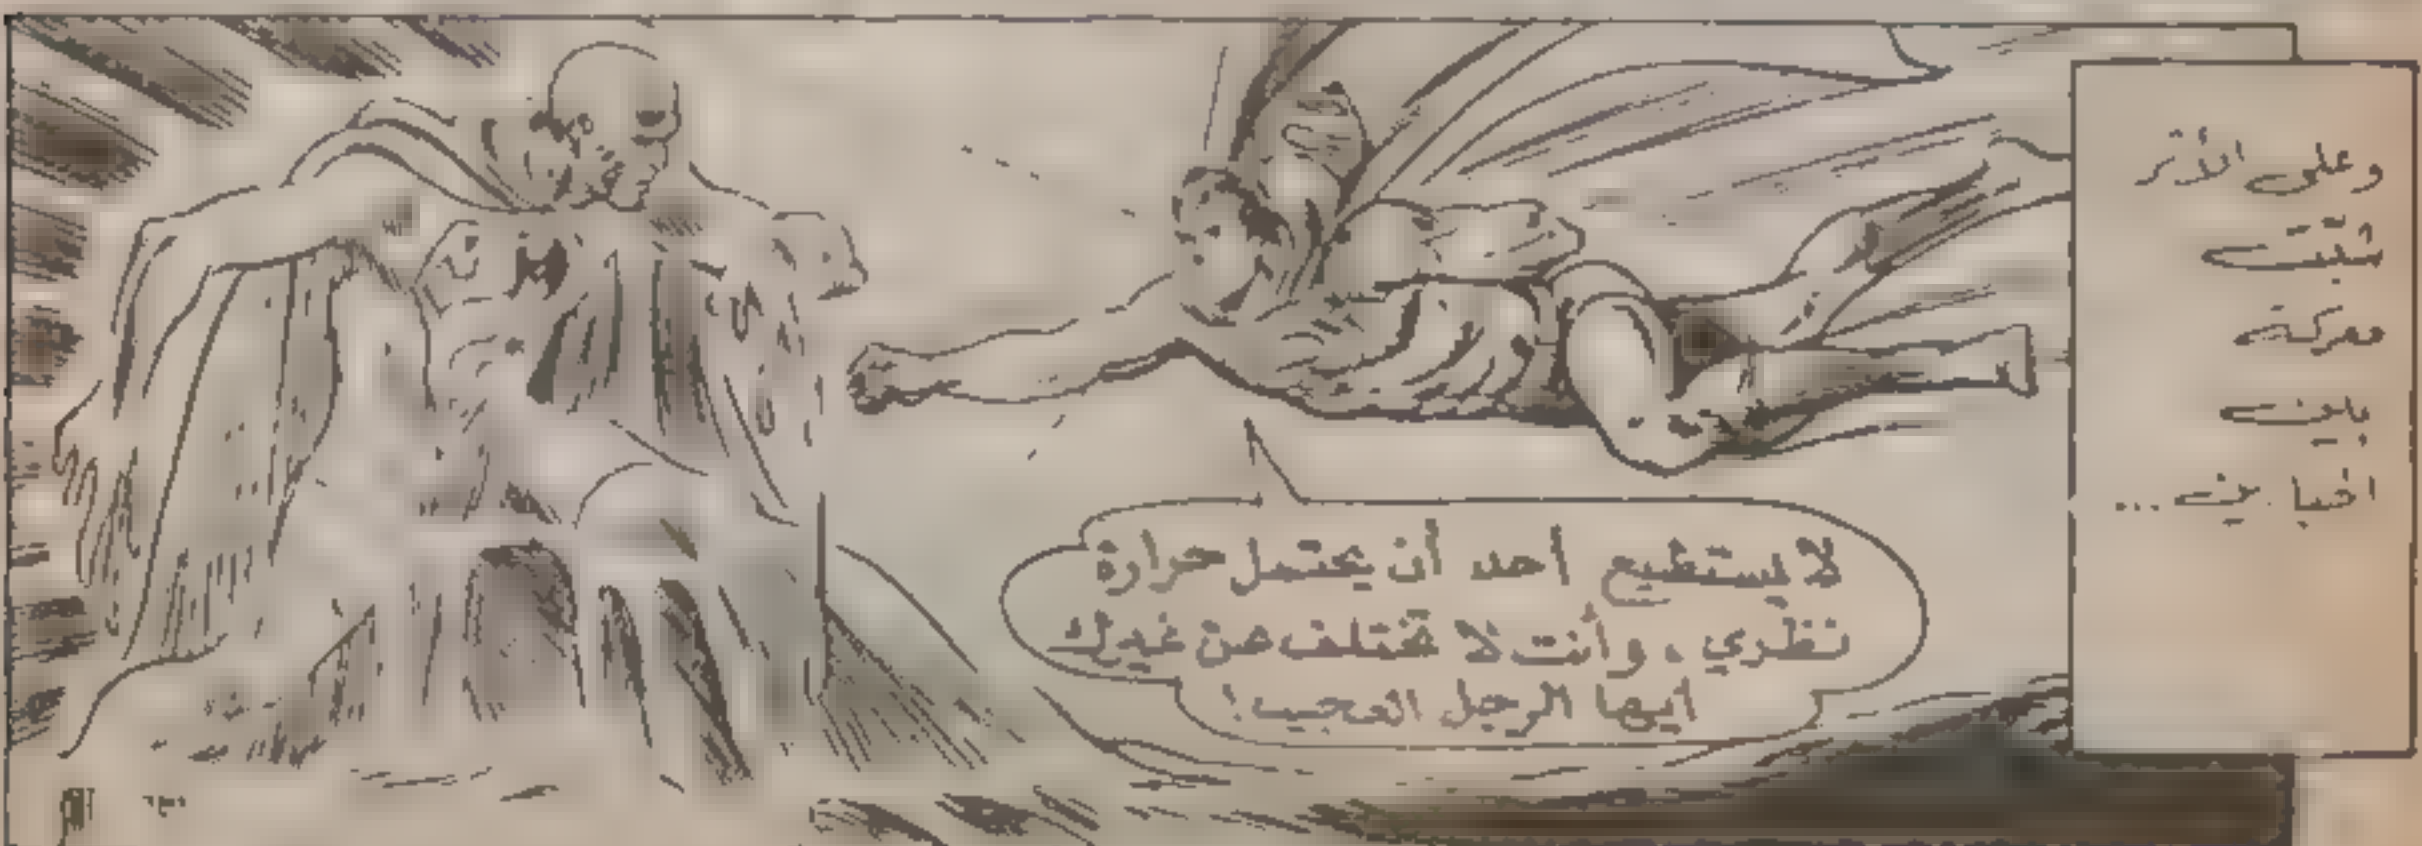 وعلى الأثر
شبّت
معركة
بين
الجبارين ...
لا يستطيع أحد أن يحتمل حرارة
نظري ، وأنت لا تختلف عن غيرك
ايها الرجل العجيب !